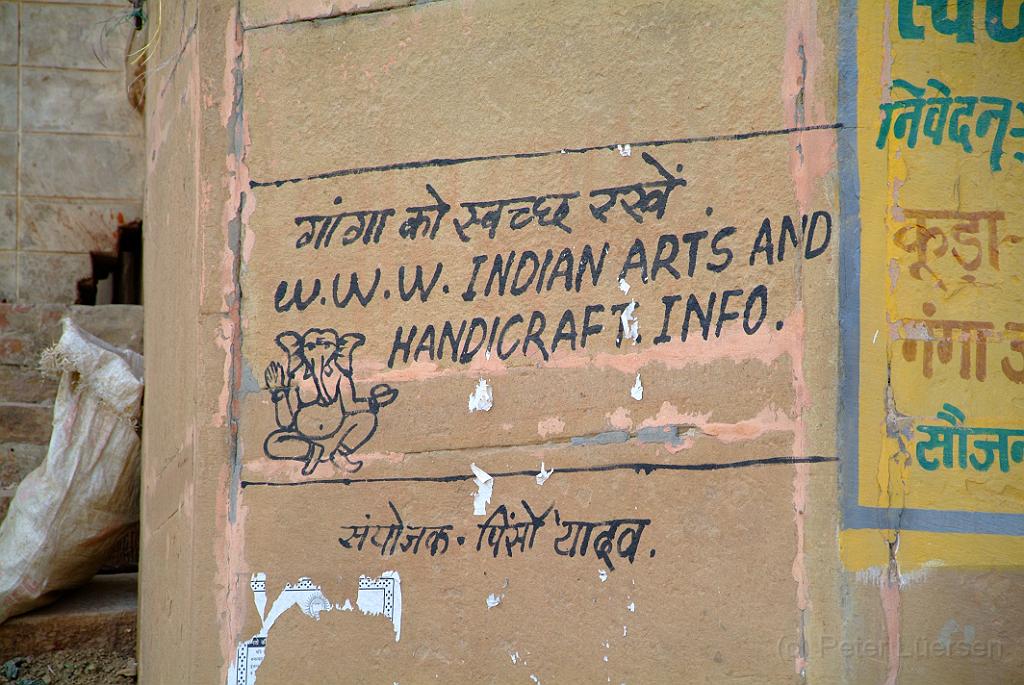 गांगा को स्वच्छ रखें
W.W.W. INDIAN ARTS AND
HANDICRAFT. INFO.
संयोजक. पिंसो यादव.
निवेदन:
कूड़ा-
गंगा
सौजन
(c) Peter Lüersen